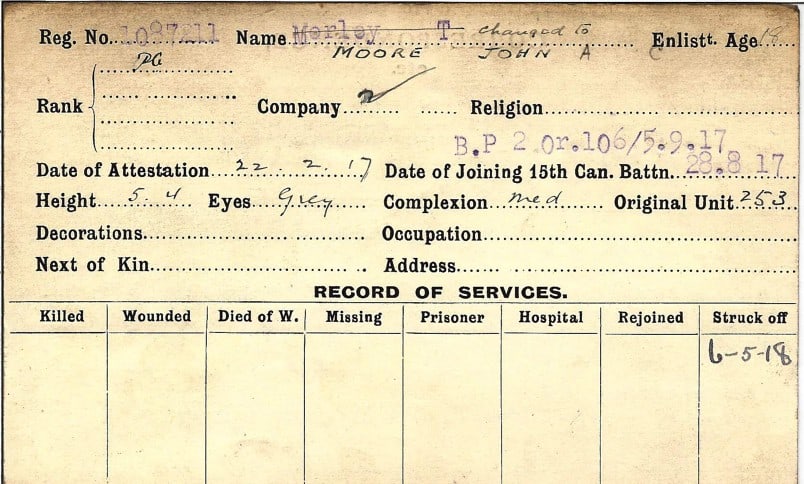 Reg. No. 1087211 Name Morley T changed to Enlistt. Age 18
MOORE JOHN A C
Rank Pte Company 2 Religion
B.P 2 Or.106/5.9.17
Date of Attestation 22 . 2 . 17 Date of Joining 15th Can. Battn. 28.8 17
Height 5.4 Eyes Grey Complexion med Original Unit 253
Decorations Occupation
Next of Kin Address
RECORD OF SERVICES.
Killed Wounded Died of W. Missing Prisoner Hospital Rejoined Struck off
6-5-18